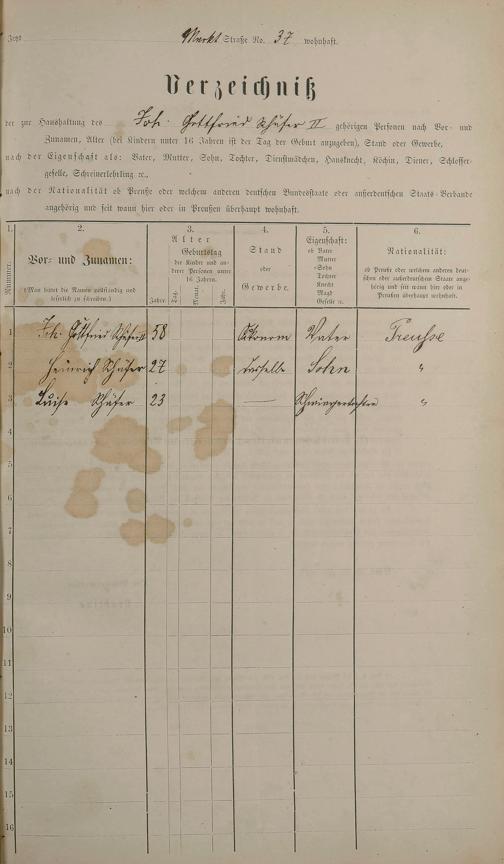 Jetzt Markt Straße No. 37 wohnhaft.
Verzeichniß
der zur Haushaltung des Joh. Gottfried Schäfer II gehörigen Personen nach Vor- und
Zunamen, Alter (bei Kindern unter 16 Jahren ist der Tag der Geburt anzugeben), Stand oder Gewerbe,
nach der Eigenschaft als: Vater, Mutter, Sohn, Tochter, Dienstmädchen, Hausknecht, Köchin, Diener, Schlosser-
geselle, Schreinerlehrling ꝛc.,
nach der Nationalität ob Preuße oder welchem anderen deutschen Bundesstaate oder außerdeutschen Staats-Verbande
angehörig und seit wann hier oder in Preußen überhaupt wohnhaft.
1. 2. 3. 4. 5. 6.
Nummer.
Vor- und Zunamen:
(Man bittet die Namen vollständig und
leserlich zu schreiben.)
Alter
Geburtstag
der Kinder und an-
derer Personen unter
16 Jahren.
Jahre. Tag. Monat. Jahr.
Stand
oder
Gewerbe.
Eigenschaft:
ob Vater
Mutter
Sohn
Tochter
Knecht
Magd
Geselle ꝛc.
Nationalität:
ob Preuße oder welchem anderen deut-
schen oder außerdeutschen Staate ange-
hörig und seit wann hier oder in
Preußen überhaupt wohnhaft.
1 Joh. Gottfried Schäfer II 58 Ökonom Vater Preusse
2 Heinrich Schäfer 27 derselbe Sohn "
3 Luise Schäfer 23 — Schwiegertochter "
4
5
6
7
8
9
10
11
12
13
14
15
16